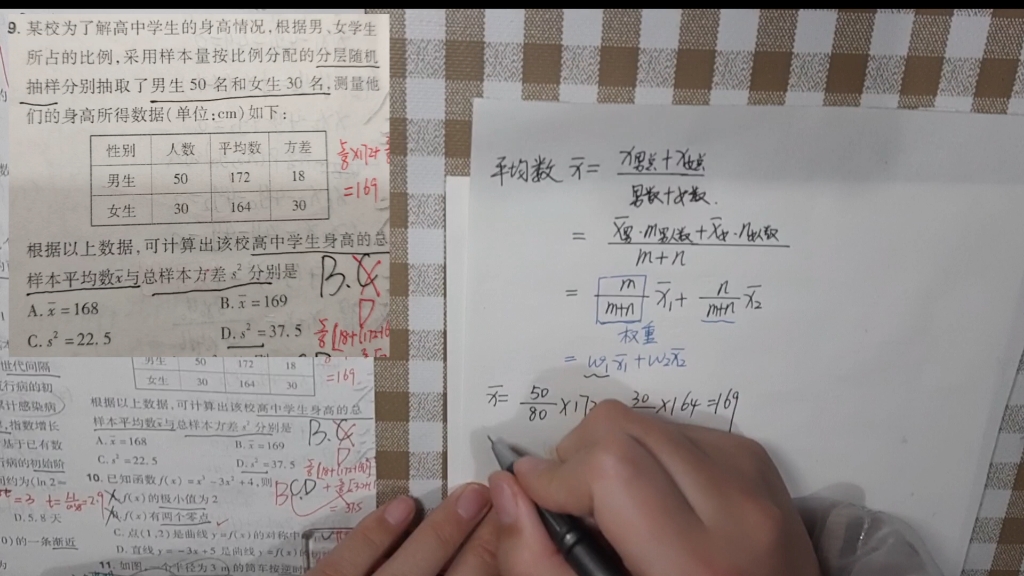 9. 某校为了解高中学生的身高情况,根据男、女学生
所占的比例,采用样本量按比例分配的分层随机
抽样分别抽取了男生 50 名和女生 30 名,测量他
们的身高所得数据(单位:cm)如下:
性别 人数 平均数 方差
男生 50 172 18
女生 30 164 30
5/8×172+
=169
根据以上数据,可计算出该校高中学生身高的总
样本平均数x̄与总样本方差 s² 分别是
A. x̄=168 B. x̄=169
C. s²=22.5 D. s²=37.5
B.C
D
5/8[18+(172-16
=169
男生 50 172 18
女生 30 164 30
世代间隔
行病的初
累计感染病
,指数增长
基于已有数
行病的初始阶
的约为(ln 2=
D. 5.8 天
)的一条渐近
根据以上数据,可计算出该校高中学生身高的总
样本平均数x̄与总样本方差 s² 分别是
A. x̄=168 B. x̄=169
C. s²=22.5 D. s²=37.5
B.C
D
10. 已知函数 f(x)=x³-3x²+4,则
BCD
=37.5
A. f(x)的极小值为 2
B. f(x)有两个零点
C. 点(1,2)是曲线 y=f(x)的对称中
D. 直线 y=-3x+5 是曲线 y=f(x)的
11. 如图,一个半径为 3 m 的筒车按逆时
平均数 x̄= (x男总+x女总)/(男数+女数)
= (x̄男·m男人数+x̄女·n女人数)/(m+n)
= m/(m+n) x̄1+ n/(m+n) x̄2
权重
= w1x̄1+w2x̄2
x̄= 50/80 ×172 30 ×164=169